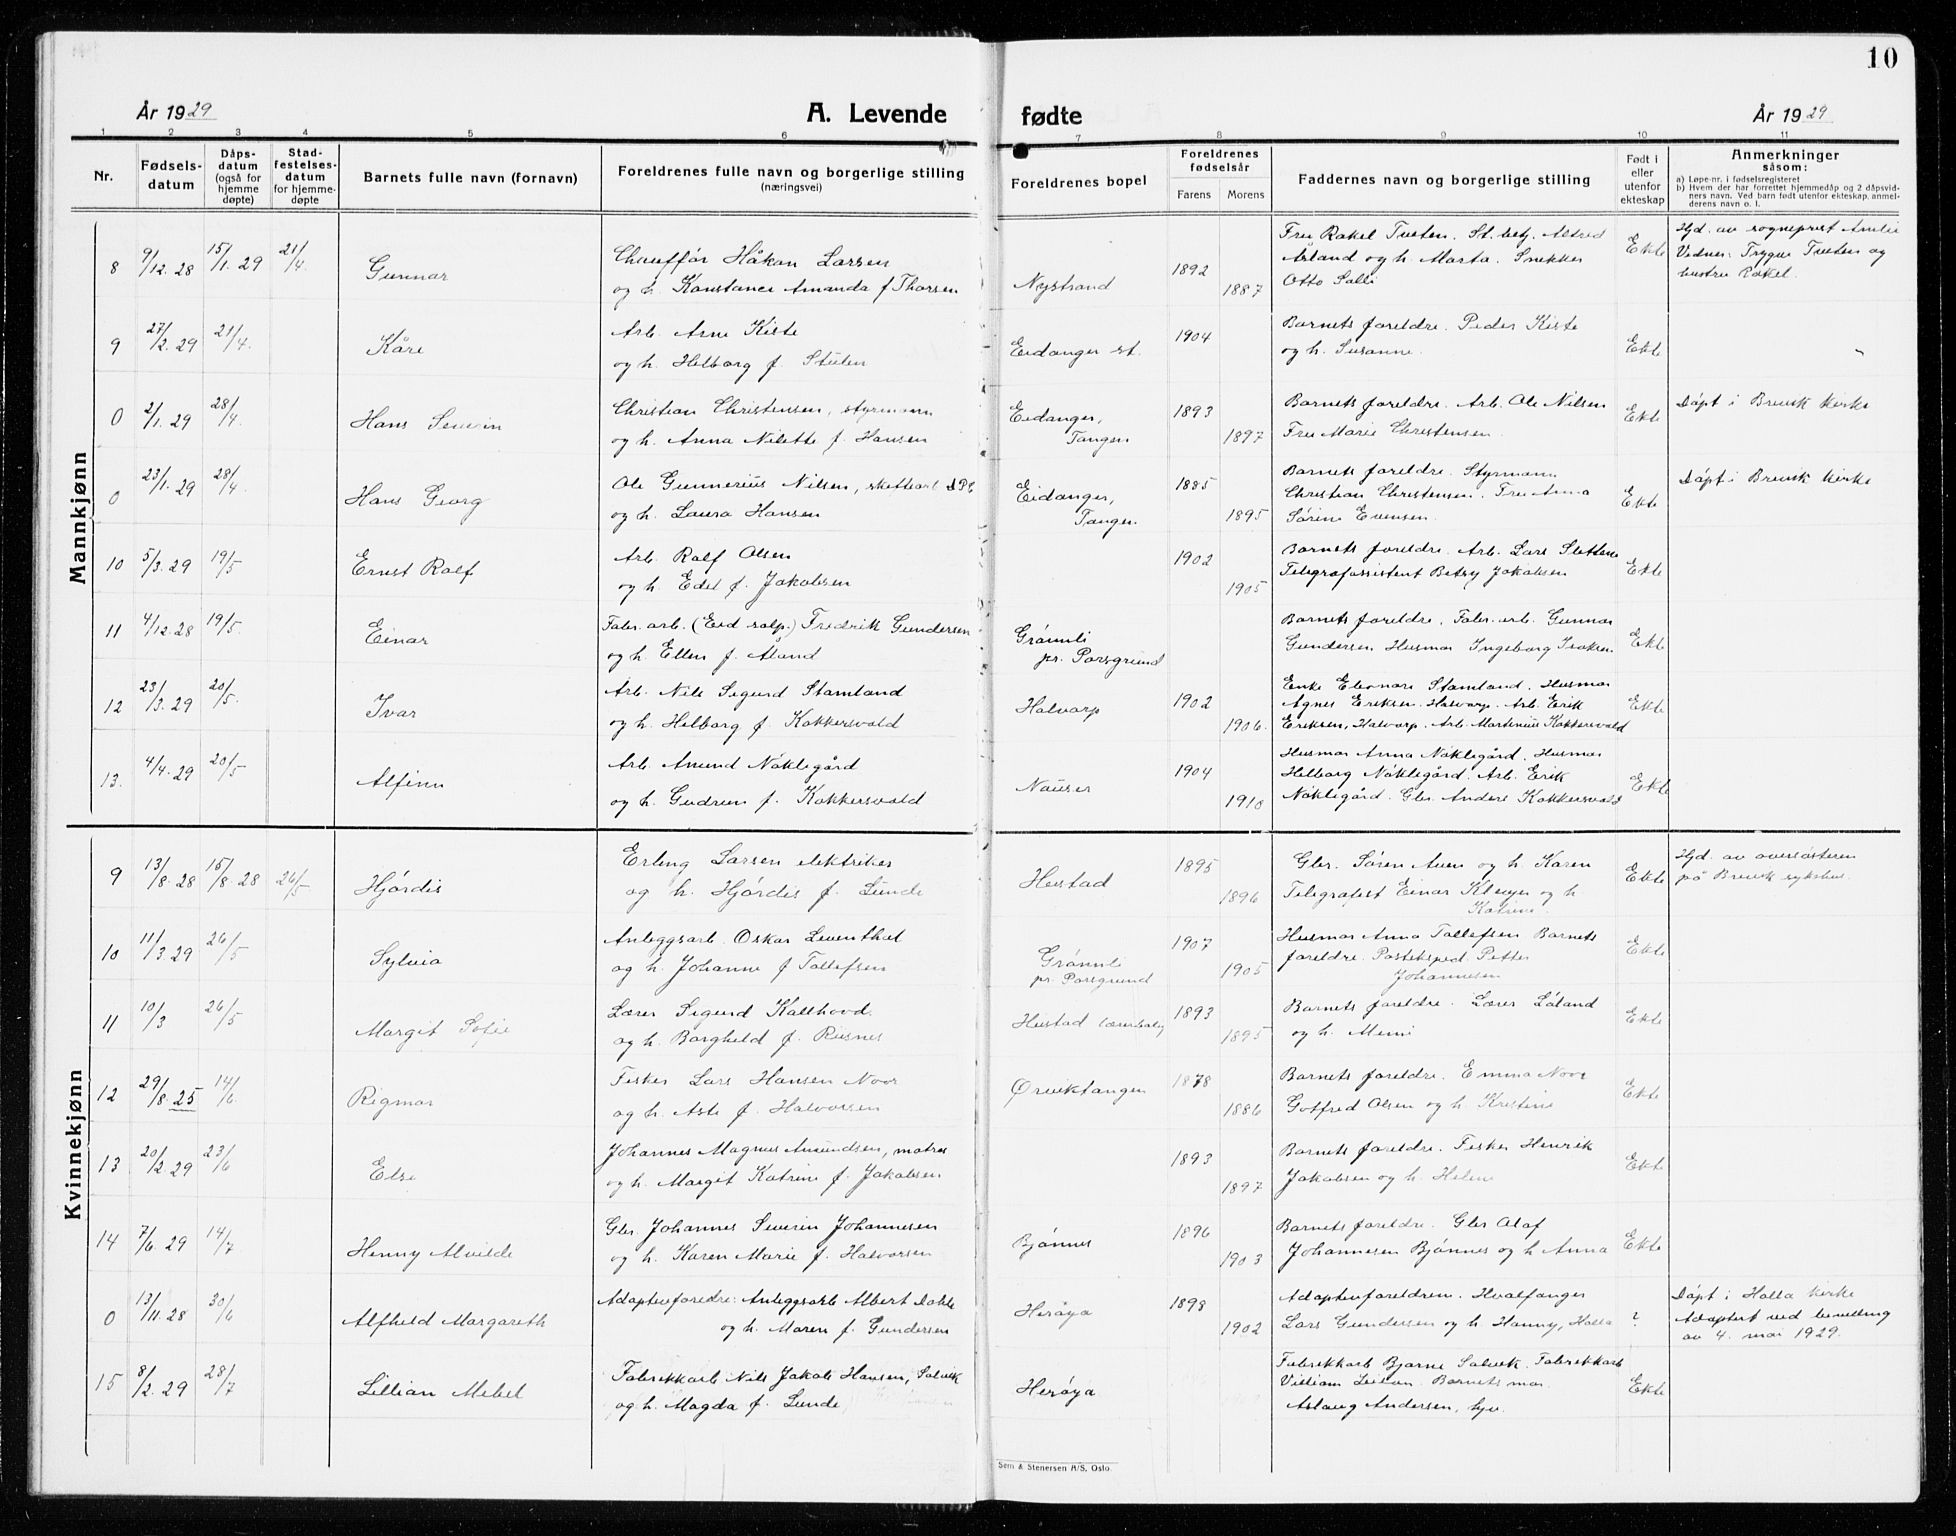 10
År 1929
A. Levende fødte
År 1929
1 2 3 4 5 6 7 8 9 10 11
Nr.
Fødsels-
datum
Dåps-
datum
(også for
hjemme
døpte)
Stad-
festelses-
datum
for hjemme-
døpte
Barnets fulle navn (fornavn)
Foreldrenes fulle navn og borgerlige stilling
(næringsvei)
Foreldrenes bopel
Foreldrenes
fødselsår
Farens Morens
Faddernes navn og borgerlige stilling
Født i
eller
utenfor
ekteskap
Anmerkninger
såsom:
a) Løpe-nr. i fødselsregisteret
b) Hvem der har forrettet hjemmedåp og 2 dåpsvid-
ners navn. Ved barn født utenfor ekteskap, anmel-
derens navn o. l.
Mannkjønn
8 9/12. 28 15/1. 29 21/4. Gunnar
Chauffør Håkan Larsen
og h. Konstance Amanda f Thorsen
Nystrand 1892 1887
Fru Rakel Tveten. St. betj. Alfred
Åsland og h. Marta. Snekker
Otto Salli
Ekte
Hjd. av sogneprest Amlie
Vidner: Trygve Tveten og
hustru Rakel.
9 27/2. 29 21/4. Kåre
Arb. Arne Kiste
og h. Helborg f. Stulen
Eidanger st. 1904
Barnets foreldre. Peder Kiste
og h. Susanne.
Ekte
0 2/1. 29 28/4. Hans Severin
Christian Christensen, styrmann
og h. Anna Nilette f. Hansen
Eidanger,
Tangen
1893 1897
Barnets foreldre. Arb. Ole Nilsen
Fru Marie Christensen.
Ekte
Døpt i Brevik Kirke
0 23/1. 29 28/4. Hans Georg
Ole Gunnerius Nilsen,
og h. Laura Hansen
Eidanger,
Tangen
1885 1895
Barnets foreldre. Styrmann
Christian Christensen. Fru Anna
Sørine Evensen.
Ekte
Døpt i Brevik Kirke
10 5/3. 29 19/5 Ernst Ralf
Arb. Ralf Olsen
og h. Edel f. Jakobsen
1902 1905
Barnets foreldre. Arb. Lars Slettene
Telegrafassistent Betsy Jakobsen
Ekte
11 4/12. 28 19/5. Einar
Fabr. arb. (Eid salp.) Fredrik Gundersen
og h. Ellen f. Åland
Grønnli
pr. Porsgrund
Barnets foreldre. Fabr. arb. Gunnar
Gundersen Husmor Ingeborg Isaksen
Ekte
12 23/3. 29 20/5. Ivar
Arb. Nils Sigurd Stamland
og h. Helborg f. Kokkersvold
Halvarp 1902 1906.
Enke Eleonore Stamland. Husmor
Agnes Eriksen. Halvarp. Arb. Erik
Eriksen, Halvarp. Arb. Martinius Kokkersvold
Ekte
13. 4/4. 29 20/5 Alfinn
Arb. Amund Nøklegård
og h. Gudrun f. Kokkersvold
Nauser 1904 1910
Husmor Anna Nøklegård. Husmor
Helborg Nøklegård. Arb. Erik
Nøklegård. Gbr. Anders Kokkersvold
Ekte
Kvinnekjønn
9 13/8. 28 15/8. 28 26/5 Hjørdis
Erling Larsen elektriker
og h. Hjørdis f. Lunde
Heistad 1895 1896
Gbr. Søren Auen og h. Karen
Telegrafist Einar Kleven og h
Katrine.
Ekte
Hjd. av oversøsteren
på Brevik sykehus.
10 11/3. 29 26/5 Sylvia
Anleggsarb. Oskar Leventhal
og h. Johanne f Tallefsen
Grønnli
pr. Porsgrund
1907 1905
Husmor Anna Tallefsen Barnets
foreldre. Posteksped. Petter
Johannesen
Ekte
11 10/3 26/5 Margit Sofie
Lærer Sigurd Kallhovd.
og h. Borghild f. Rusnes
Heistad lærerbolig 1893 1895
Barnets foreldre. Lærer Låland
og h. Memi
Ekte
12 29/8. 25 14/6. Rigmor
Fisker Lars Hansen Noor
og h. Aste f. Halvorsen
Ørviktangen 1878 1886
Barnets foreldre. Emma Nove
Gotfred Olsen og h. Kristine
Ekte
13 20/2. 29 23/6 Else
Johannes Magnus Amundsen, matros
og h. Margit Katrine f. Jakobsen
1893 1897
Barnets foreldre. Fisker Henrik
Jakobsen og h. Helene
Ekte
14 7/6. 29 14/7 Henny Alvilde
Gbr. Johannes Severin Johannesen
og h. Karen Marie f. Halvorsen
Bjønnes 1896 1903
Barnets foreldre. Gbr Olaf
Johannesen Bjønnes og h Anna
Ekte
0 13/11. 28 30/6 Alfhild Margareth
Adoptivforeldre: Anleggsarb Albert Dokke
og h. Maren f. Gundersen
Herøya 1898 1902
Adoptivforeldrene. Hvalfanger
Lars Gundersen og h. Hanny, Holla
?
Døpt i Holla kirke
Adoptert ved bevilling
av 4. mai 1929.
15 8/2. 29 28/7 Lillian Mebel
Fabrikkarb Nils Jakob Hansen, Solvik
og h. Magda f. Lunde
Herøya
Fabrikkarb Bjarne Solvik. Fabrikkarb
Barnets mor.
Aslaug Andersen, hju.
Ekte
Sem & Stenersen A/S, Oslo.